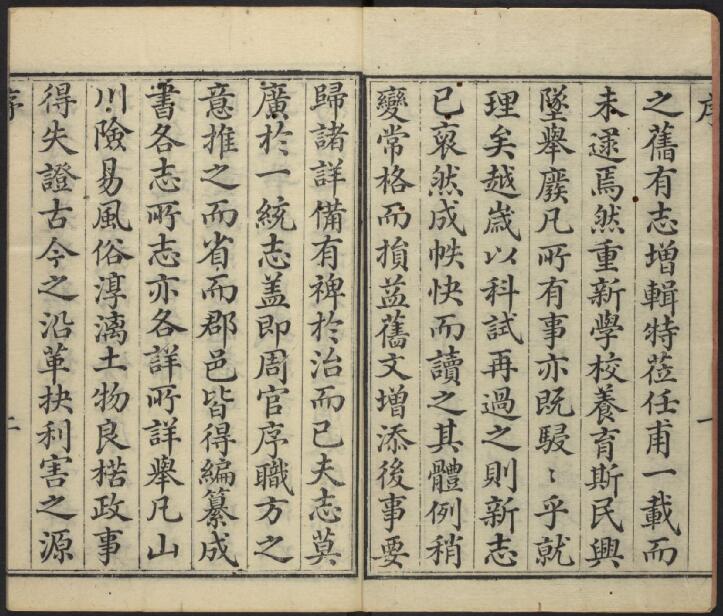 序
一
之舊有志增輯特莅任甫一載而
未遂焉然重新學校養育斯民興
墜舉廢凡所有事亦既駸〻乎就
理矣越歲以科試再過之則新志
已裒然成帙快而讀之其體例稍
變常格而損益舊文增添後事要
歸諸詳備有裨於治而已夫志莫
廣於一統志盖即周官序職方之
意推之而省而郡邑皆得編纂成
書各志所志亦各詳所詳舉凡山
川險易風俗淳漓土物良楛政事
得失證古今之沿革抉利害之源
序
二